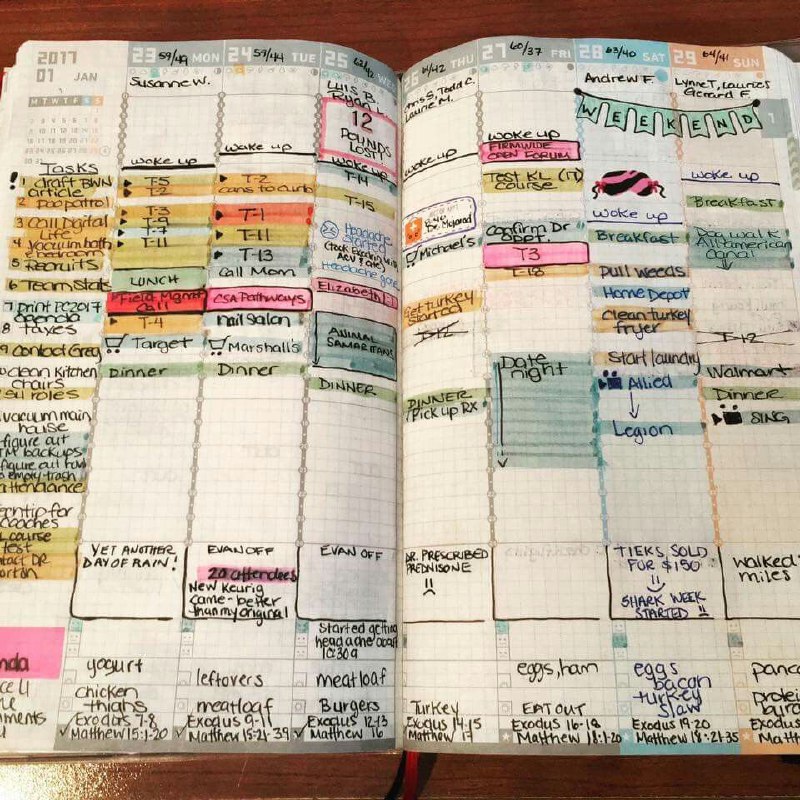 2017
01 JAN
M T W T F S S
Tasks
! 1 draft BWN
article
2 poo patrol
3 Call Digital
Life
4 vacuum bath
& bedroom
5 Recruits
6 Team Stats
7 Print PC2017
agenda
8 taxes
9 Contact Greg
clean kitchen
chairs
roles
vacuum main
house
figure out
TM backups
figure out
empty trash
attendance
tech tip for
coaches
course
test
contact DR
nda
23 59/49 MON
Susanne W.
wake up
T-5
T-2
T-3
T-9
T-7
T-11
LUNCH
*Field Mgmt
Call
T-4
Target
Dinner
YET ANOTHER
DAY OF RAIN!
yogurt
chicken
thighs
Exodus 7-8
Matthew 15:1-20
24 59/44 TUE
wake up
T-2
cans to curb
T-1
T-11
T-13
Call Mom
CSA Pathways
nail salon
Marshalls
Dinner
EVAN OFF
20 attendees
New Keurig
came - better
than my original
leftovers
meatloaf
Exodus 9-11
Matthew 15:21-39
25 62/42 WED
Luis B.
Ryan
12
POUNDS
LOST!
wake up
T-14
T-15
Headache
Started
Headache gone
Elizabeth
ANIMAL
SAMARITANS
DINNER
EVAN OFF
Started getting
headache about
10:30a
meatloaf
Burgers
Exodus 12-13
Matthew 16
61/42 THU
Chris S, Todd C.
Laurie M.
wake up
Michael's
Get turkey
started
T-12
DINNER
Pick up RX
DR. PRESCRIBED
PREDNISONE
Turkey
Exodus 14-15
Matthew 17
27 60/37 FRI
wake up
FIRMWIDE
OPEN FORUM
Test KL (IT)
course
Confirm Dr
appt.
T3
T-18
Date
night
eggs, ham
EAT OUT
Exodus 16-18
Matthew 18:1-20
28 63/40 SAT
Andrew F.
WEEKEND
wake up
Breakfast
Pull weeds
Home Depot
Clean turkey
fryer
Start laundry
Allied
Legion
TIEKS SOLD
FOR $150
SHARK WEEK
STARTED
eggs
bacon
turkey
slaw
Exodus 19-20
Matthew 18:21-35
29 64/41 SUN
Lynne T, Laurie S
Gerard F.
wake up
Breakfast
Dog walk
All american
canal
T-12
Walmart
Dinner
SING
walked
miles